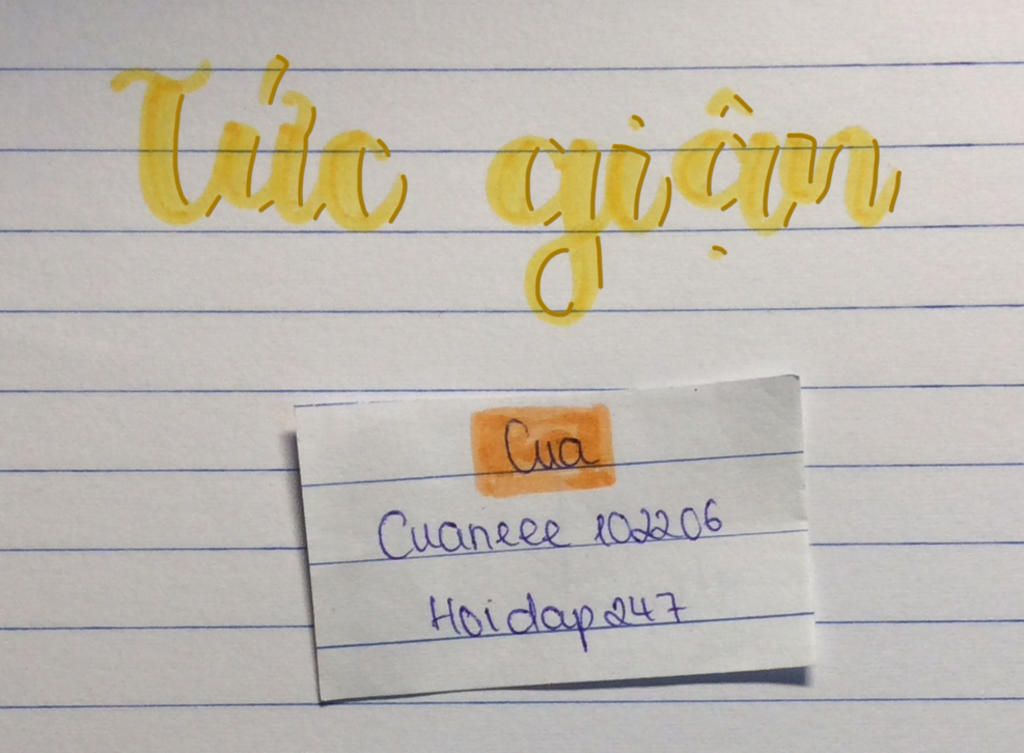 Tức giận
Cua
Cuaneee 102206
Hoidap247